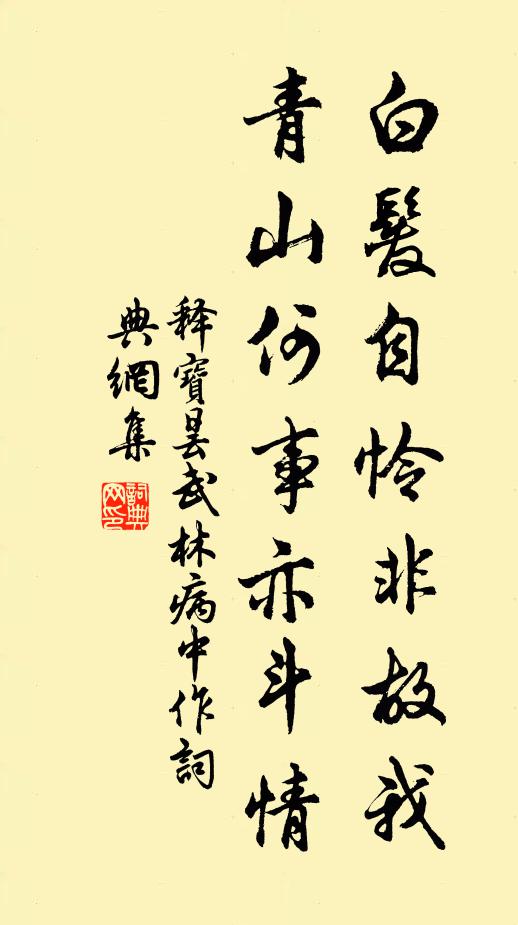 白髮自怜非故我
青山何事亦斗情
释寶昙武林病中作詞
典網集
詞典
网印